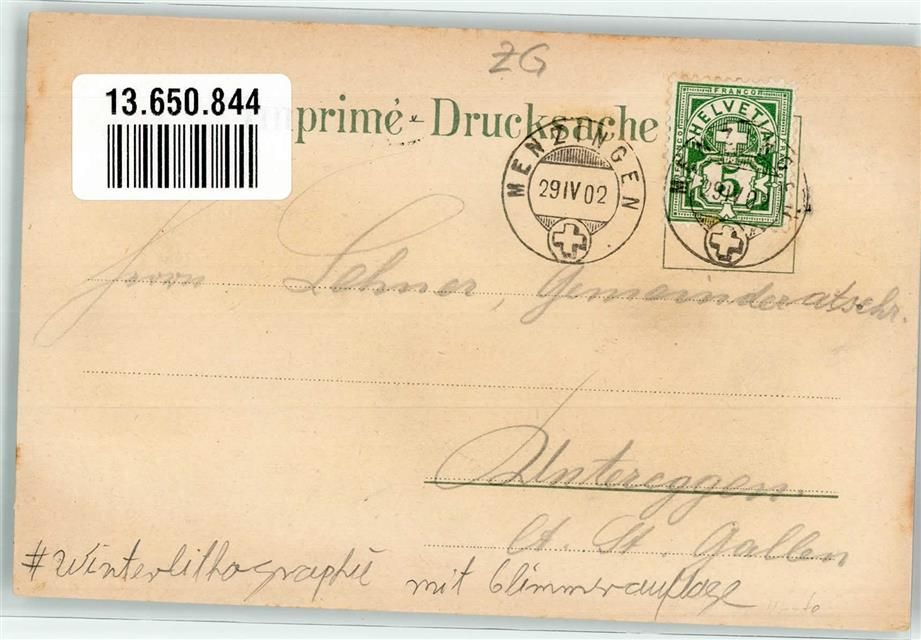 ZG
13.650.844
Imprimé - Drucksache
FRANCO
HELVETIA
5
MENZINGEN
29 IV 02
Herrn Lehner, Gemeinderatschr.
Untereggen
Ct. St. Gallen
#Winterlithographie mit Glimmerauflage